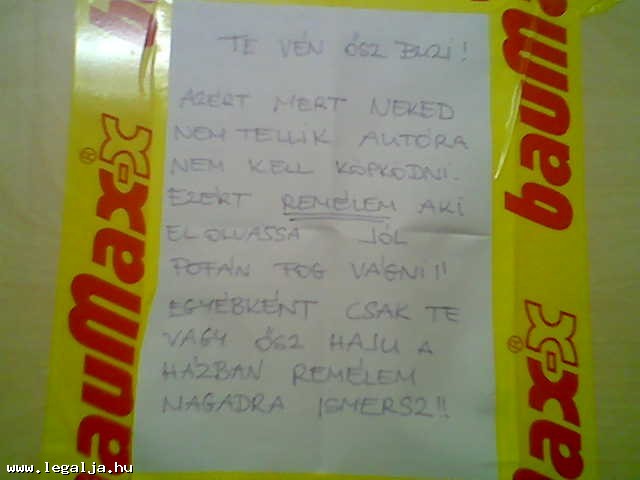 TE VÉN ŐSZ BUZI!
AZÉRT MERT NEKED
NEM TELLIK AUTÓRA
NEM KELL KÖPKÖDNI.
EZÉRT REMÉLEM AKI
ELOLVASSA JÓL
POFÁN FOG VÁGNI!!
EGYÉBKÉNT CSAK TE
VAGY ŐSZ HAJU A
HÁZBAN REMÉLEM
MAGADRA ISMERSZ!!
bauMax-x
bauMax-x
www.legalja.hu